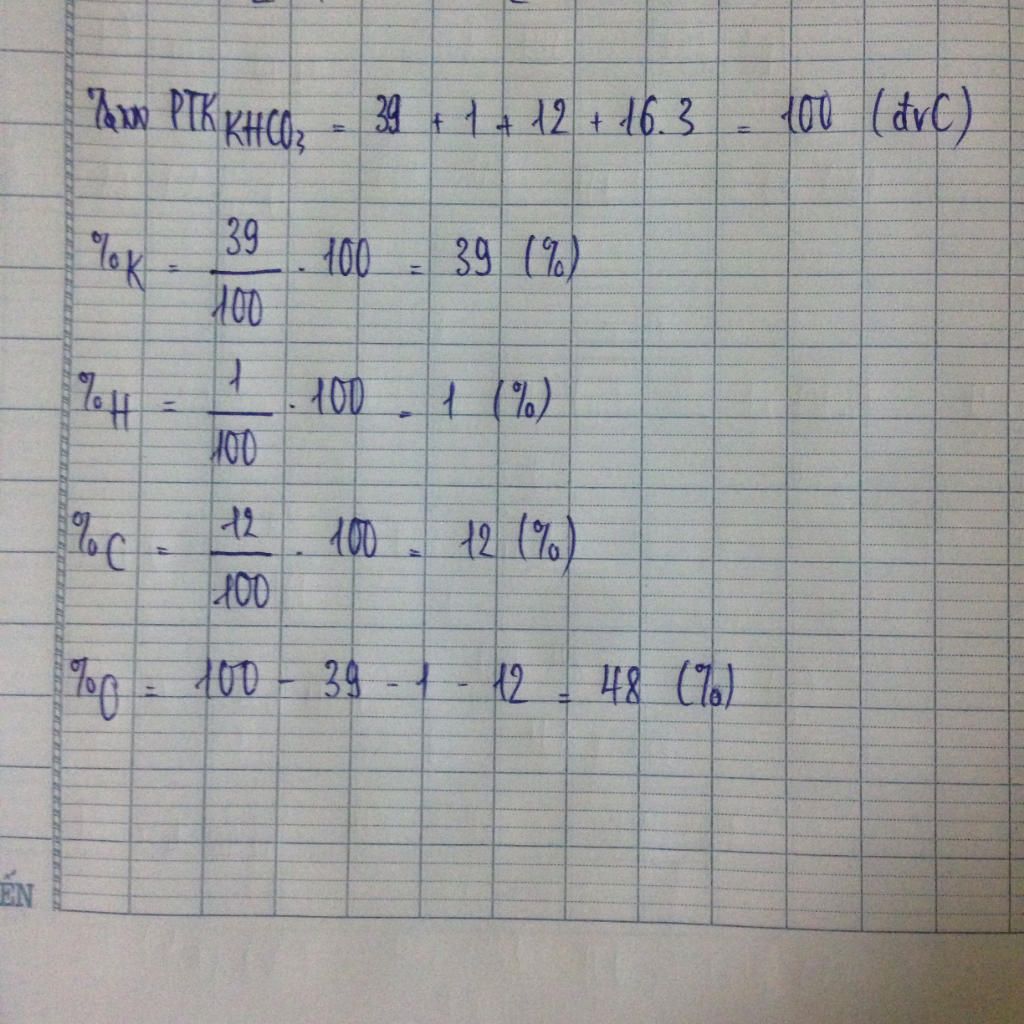 PTK KHCO₃ = 39 + 1 + 12 + 16.3 = 100 (đvC)
%K = 39/100 . 100 = 39 (%)
%H = 1/100 . 100 = 1 (%)
%C = 12/100 . 100 = 12 (%)
%O = 100 - 39 - 1 - 12 = 48 (%)
ẾN